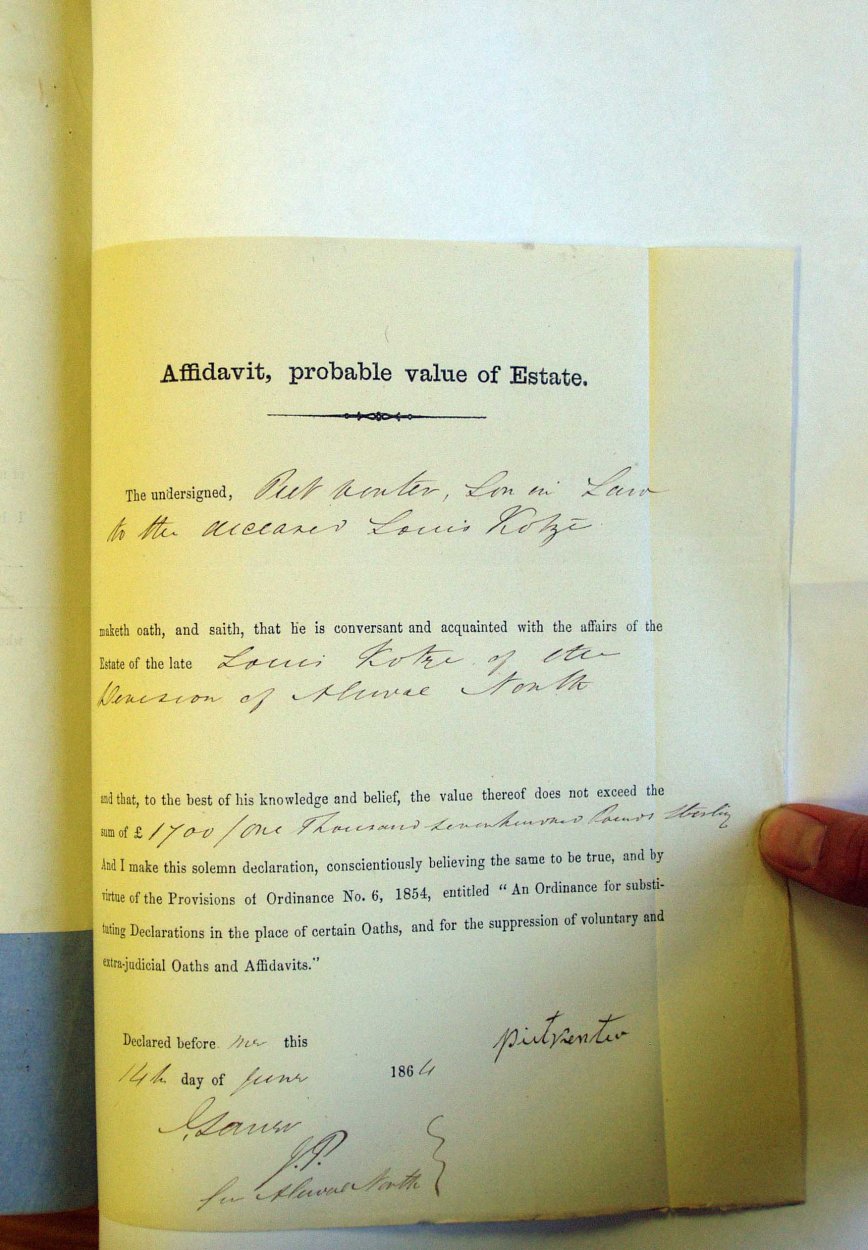 Affidavit, probable value of Estate.
The undersigned, Piet Venter, Son in Law
to the deceased Louis Kotzé
maketh oath, and saith, that he is conversant and acquainted with the affairs of the
Estate of the late Louis Kotze of the
Division of Aliwal North
and that, to the best of his knowledge and belief, the value thereof does not exceed the
sum of £ 1700 / One Thousand Sevenhundred Pounds Sterling
And I make this solemn declaration, conscientiously believing the same to be true, and by
virtue of the Provisions of Ordinance No. 6, 1854, entitled "An Ordinance for substi-
tuting Declarations in the place of certain Oaths, and for the suppression of voluntary and
extra-judicial Oaths and Affidavits."
Declared before me this
14th day of June 1864
Piet Venter
J.P.
for Aliwal North